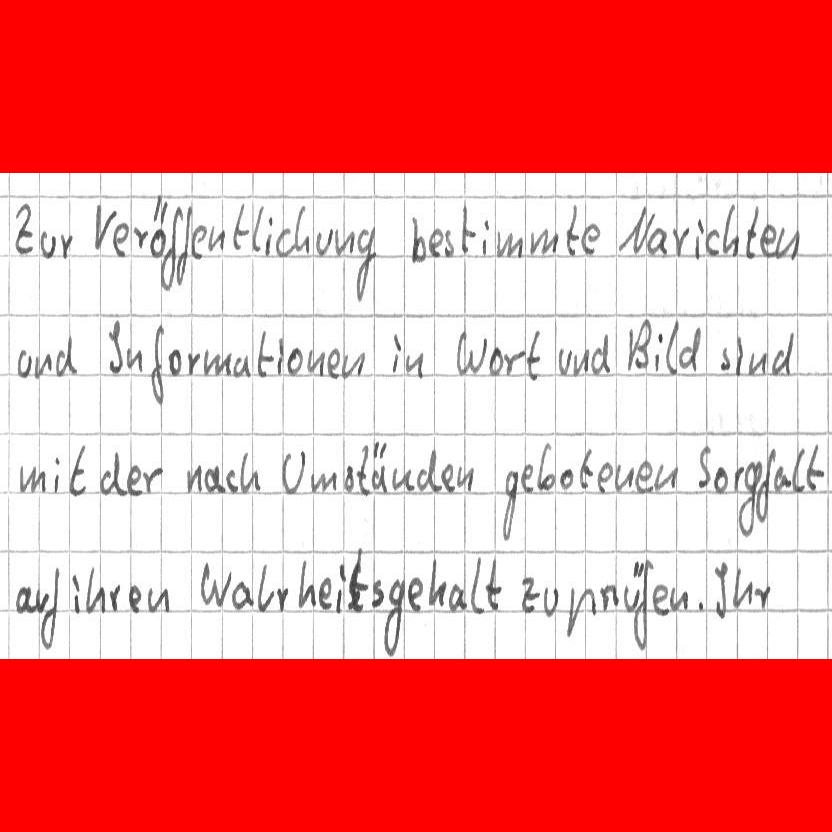 Zur Veröffentlichung bestimmte Narichten
und Informationen in Wort und Bild sind
mit der nach Umständen gebotenen Sorgfalt
auf ihren Wahrheitsgehalt zu prüfen. Ihr